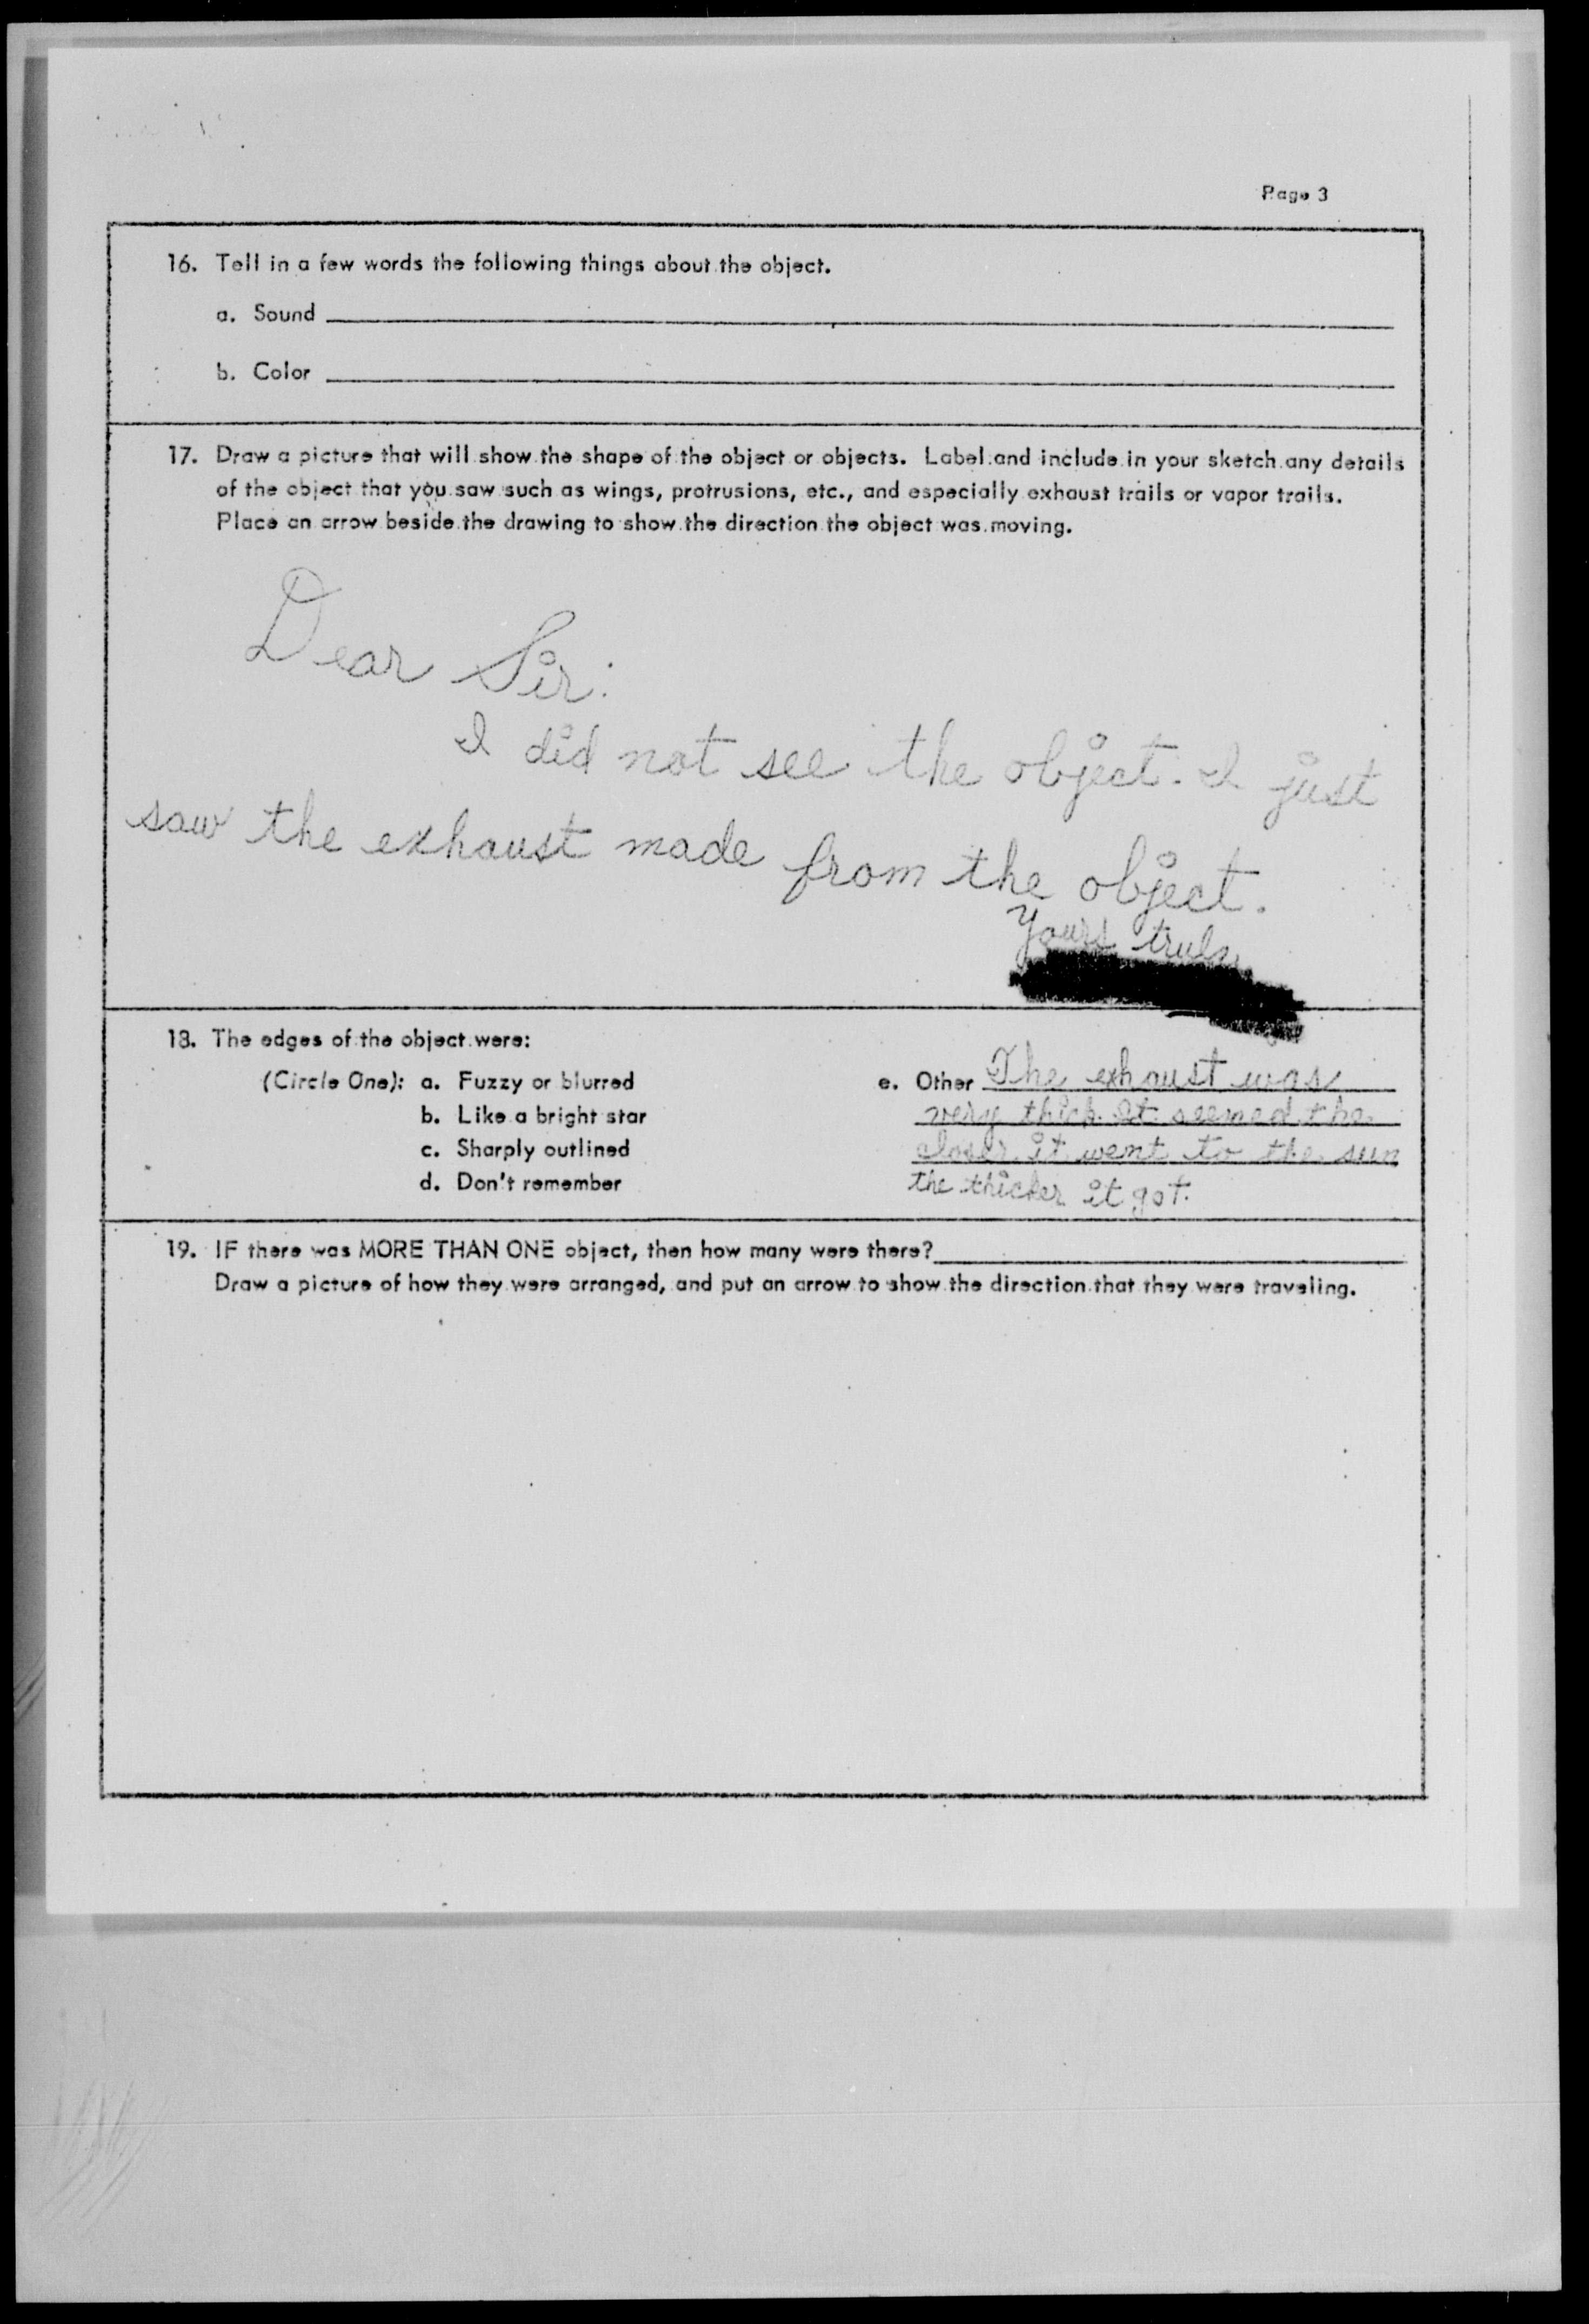 Page 3
16. Tell in a few words the following things about the object.
a. Sound
b. Color
17. Draw a picture that will show the shape of the object or objects. Label and include in your sketch any details
of the object that you saw such as wings, protrusions, etc., and especially exhaust trails or vapor trails.
Place an arrow beside the drawing to show the direction the object was moving.
Dear Sir:
I did not see the object. I just
saw the exhaust made from the object.
Yours truly
18. The edges of the object were:
(Circle One): a. Fuzzy or blurred
b. Like a bright star
c. Sharply outlined
d. Don't remember
e. Other The exhaust was
very thick. It seemed the
closer it went to the sun
the thicker it got.
19. IF there was MORE THAN ONE object, then how many were there?
Draw a picture of how they were arranged, and put an arrow to show the direction that they were traveling.